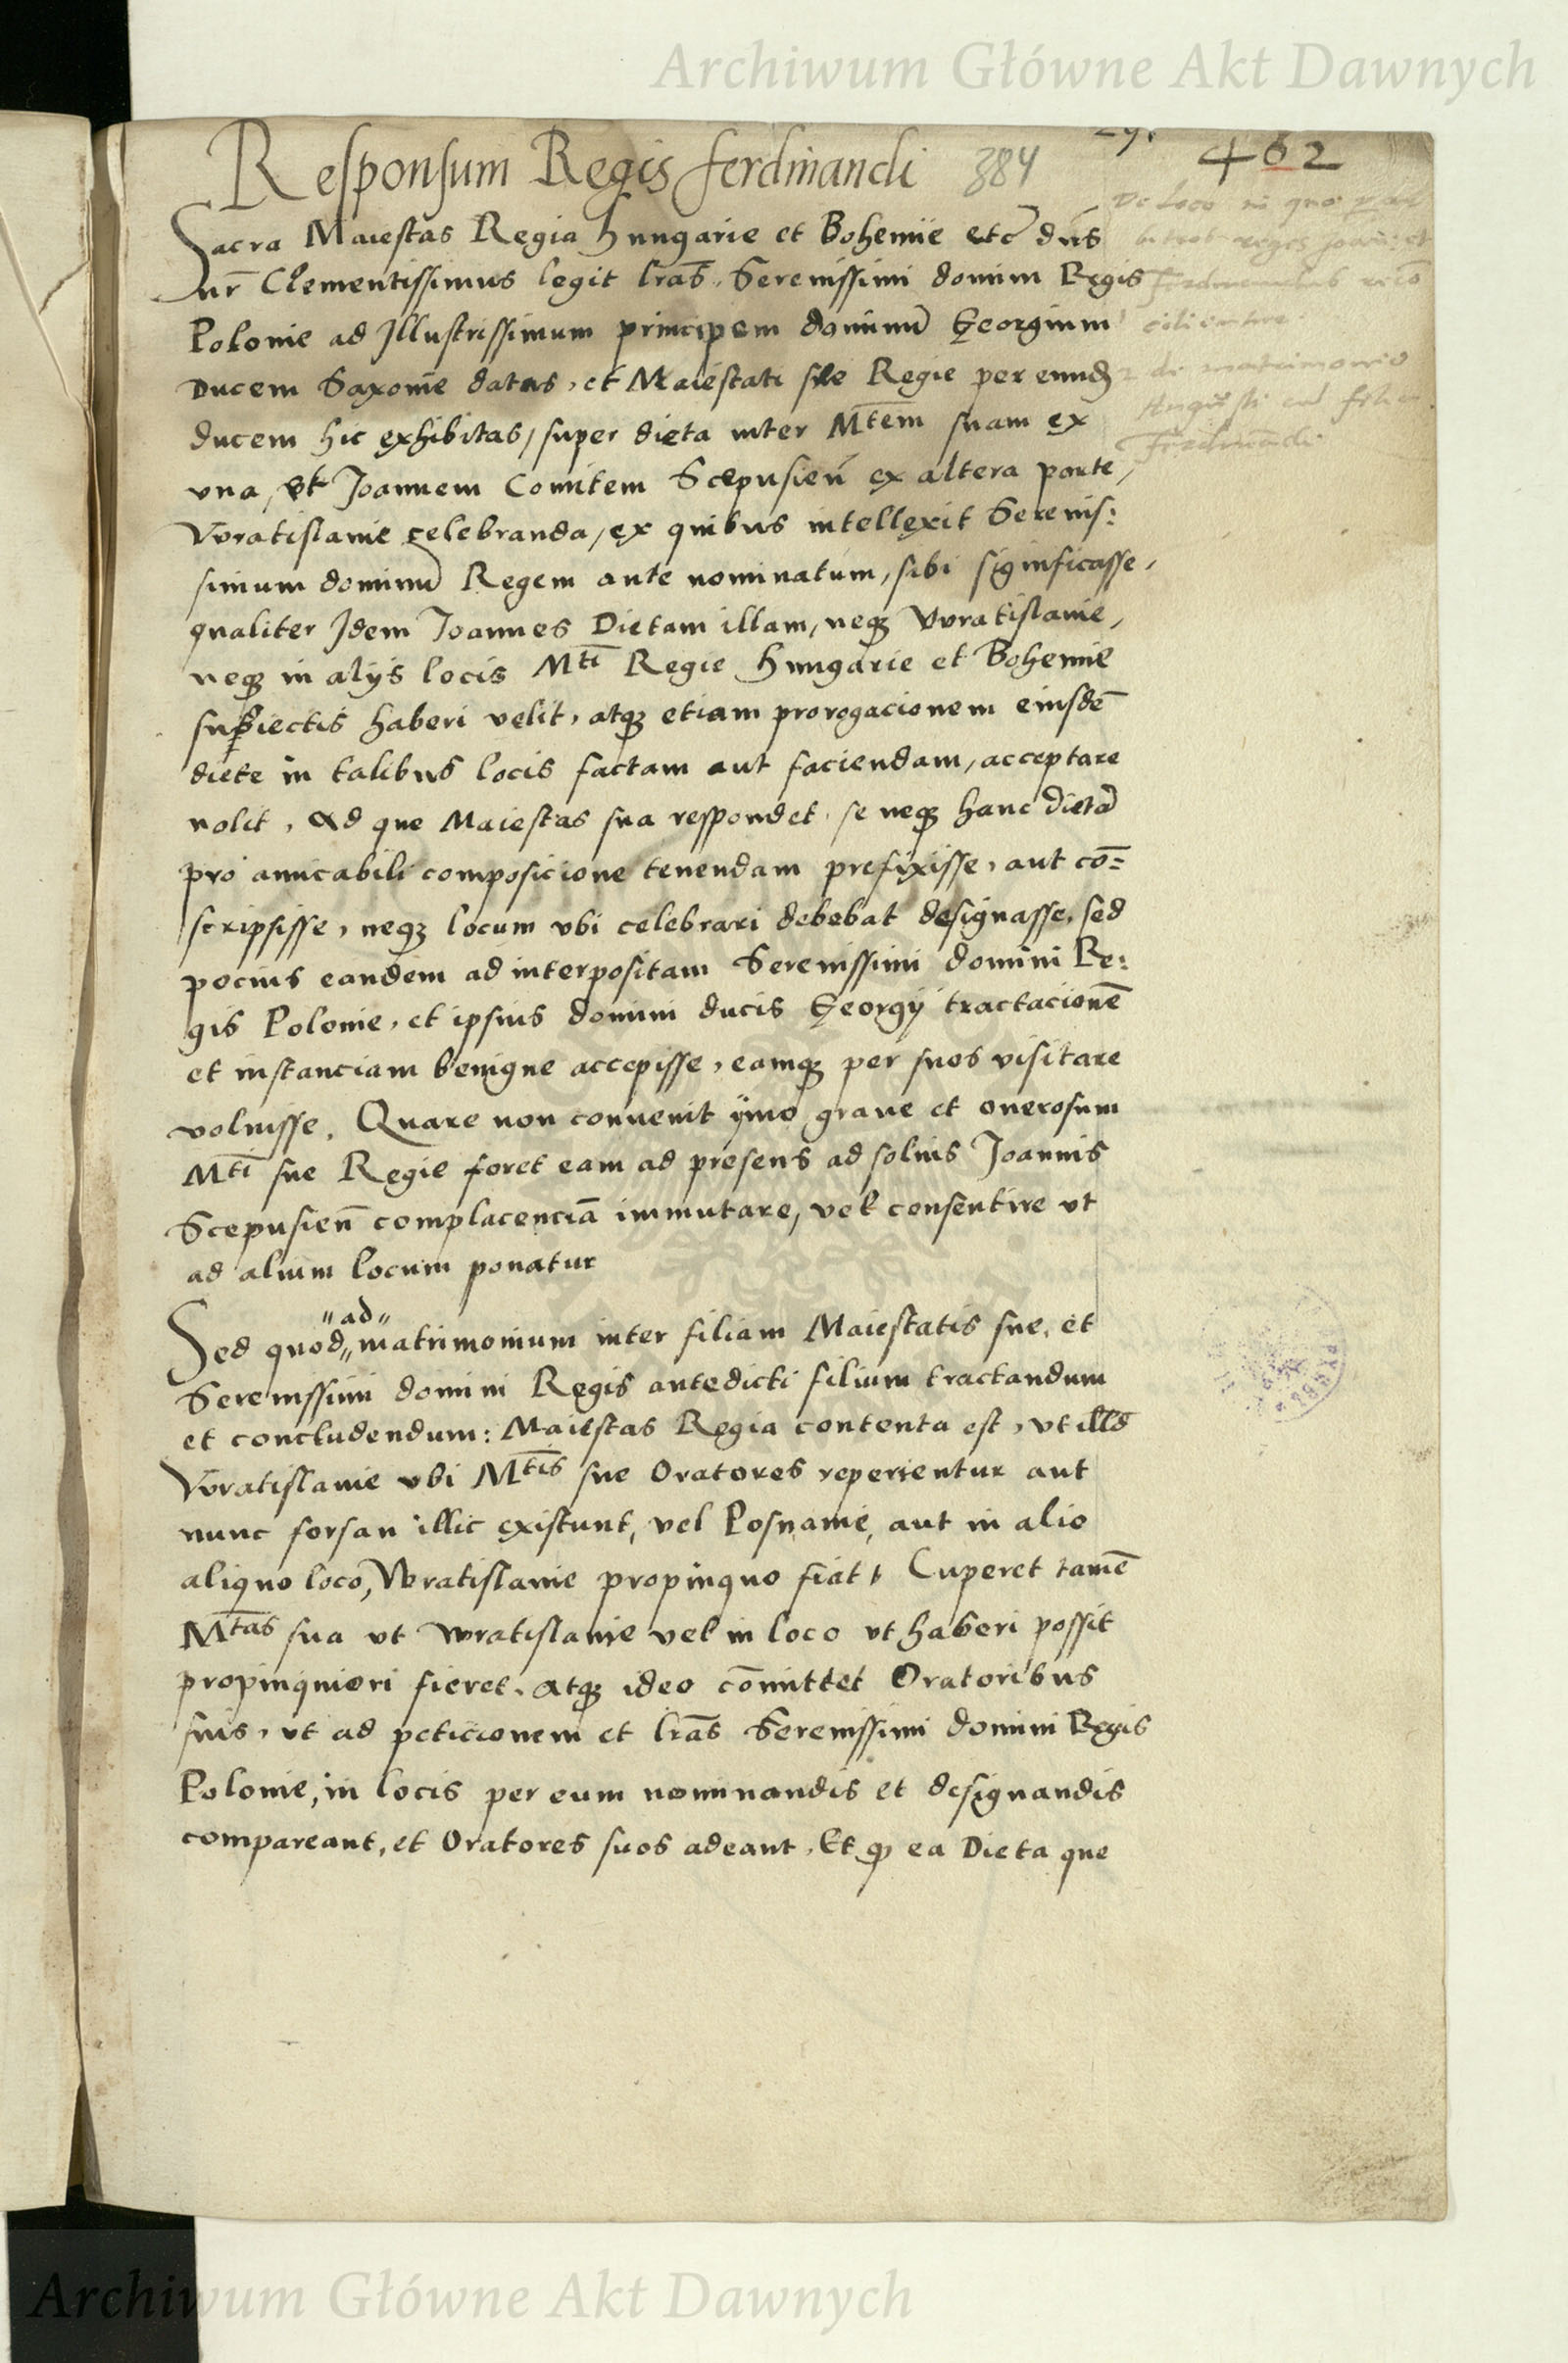 Archiwum Główne Akt Dawnych
Responsum Regis Ferdinandi 384
462
Sacra Maiestas Regia Hungarie et Bohemie etc̄ dn̄s
nr̄ Clementissimus legit lr̄as Serenissimi domini Regis
Polonie ad Illustrissimum principem dominū Georgium
Ducem Saxonie datas, et Maiestati sue Regie per eund
ducem hic exhibitas, super dieta inter Mtem suam ex
vna, et Joannem Comitem Scepusien̄ ex altera parte,
Vvratislavie celebranda, ex quibus intellexit Serenis:
simum dominū Regem ante nominatum, sibi significasse,
qualiter Idem Joannes Dietam illam, neqꝫ Vvratislavie,
neqꝫ in alijs locis Mti Regie Hungarie et Bohemie
subiectis haberi velit, atqꝫ etiam prorogacionem eiusdē
diete in talibus locis factam aut faciendam, acceptare
nolit, Ad que Maiestas sua respondet, se neqꝫ hanc dietā
pro amicabili composicione tenendam prefixisse, aut cō=
scripsisse, neqꝫ locum vbi celebrari debebat designasse, sed
pocius eandem ad interpositam Serenissimi domini Re:
gis Polonie, et ipsius domini ducis Georgij tractacionē
et instanciam benigne accepisse, eamqꝫ per suos visitare
voluisse. Quare non convenit ÿmo graue et onerosum
Mti sue Regie foret eam ad presens ad solius Joannis
Scepusien̄ complacenciā immutare, vel consentire vt
ad alium locum ponatur
"ad"
Sed quod" matrimonium inter filiam Maiestatis sue, et
Serenissimi domini Regis antedicti filium tractandum
et concludendum: Maiestas Regia contenta est, vt illd
Vvratislavie vbi Mtis sue Oratores reperientur aut
nunc forsan illic existunt, vel Posnanie, aut in alio
aliquo loco, Vvratislavie propinquo fiat, Cuperet tamē
Mtas sua vt wratislavie vel in loco vt haberi possit
propinquiori fieret. Atqꝫ ideo cōmittet Oratoribus
suis, vt ad peticionem et lr̄as Serenissimi domini Regis
Polonie, in locis per eum nominandis et designandis
compareant, et Oratores suos adeant, Et ꝙ ea Dieta que
De loco in quo
reges
Ferdinandus
de matrimonio
Augusti cū filia
Ferdinandi
Archiwum Główne Akt Dawnych